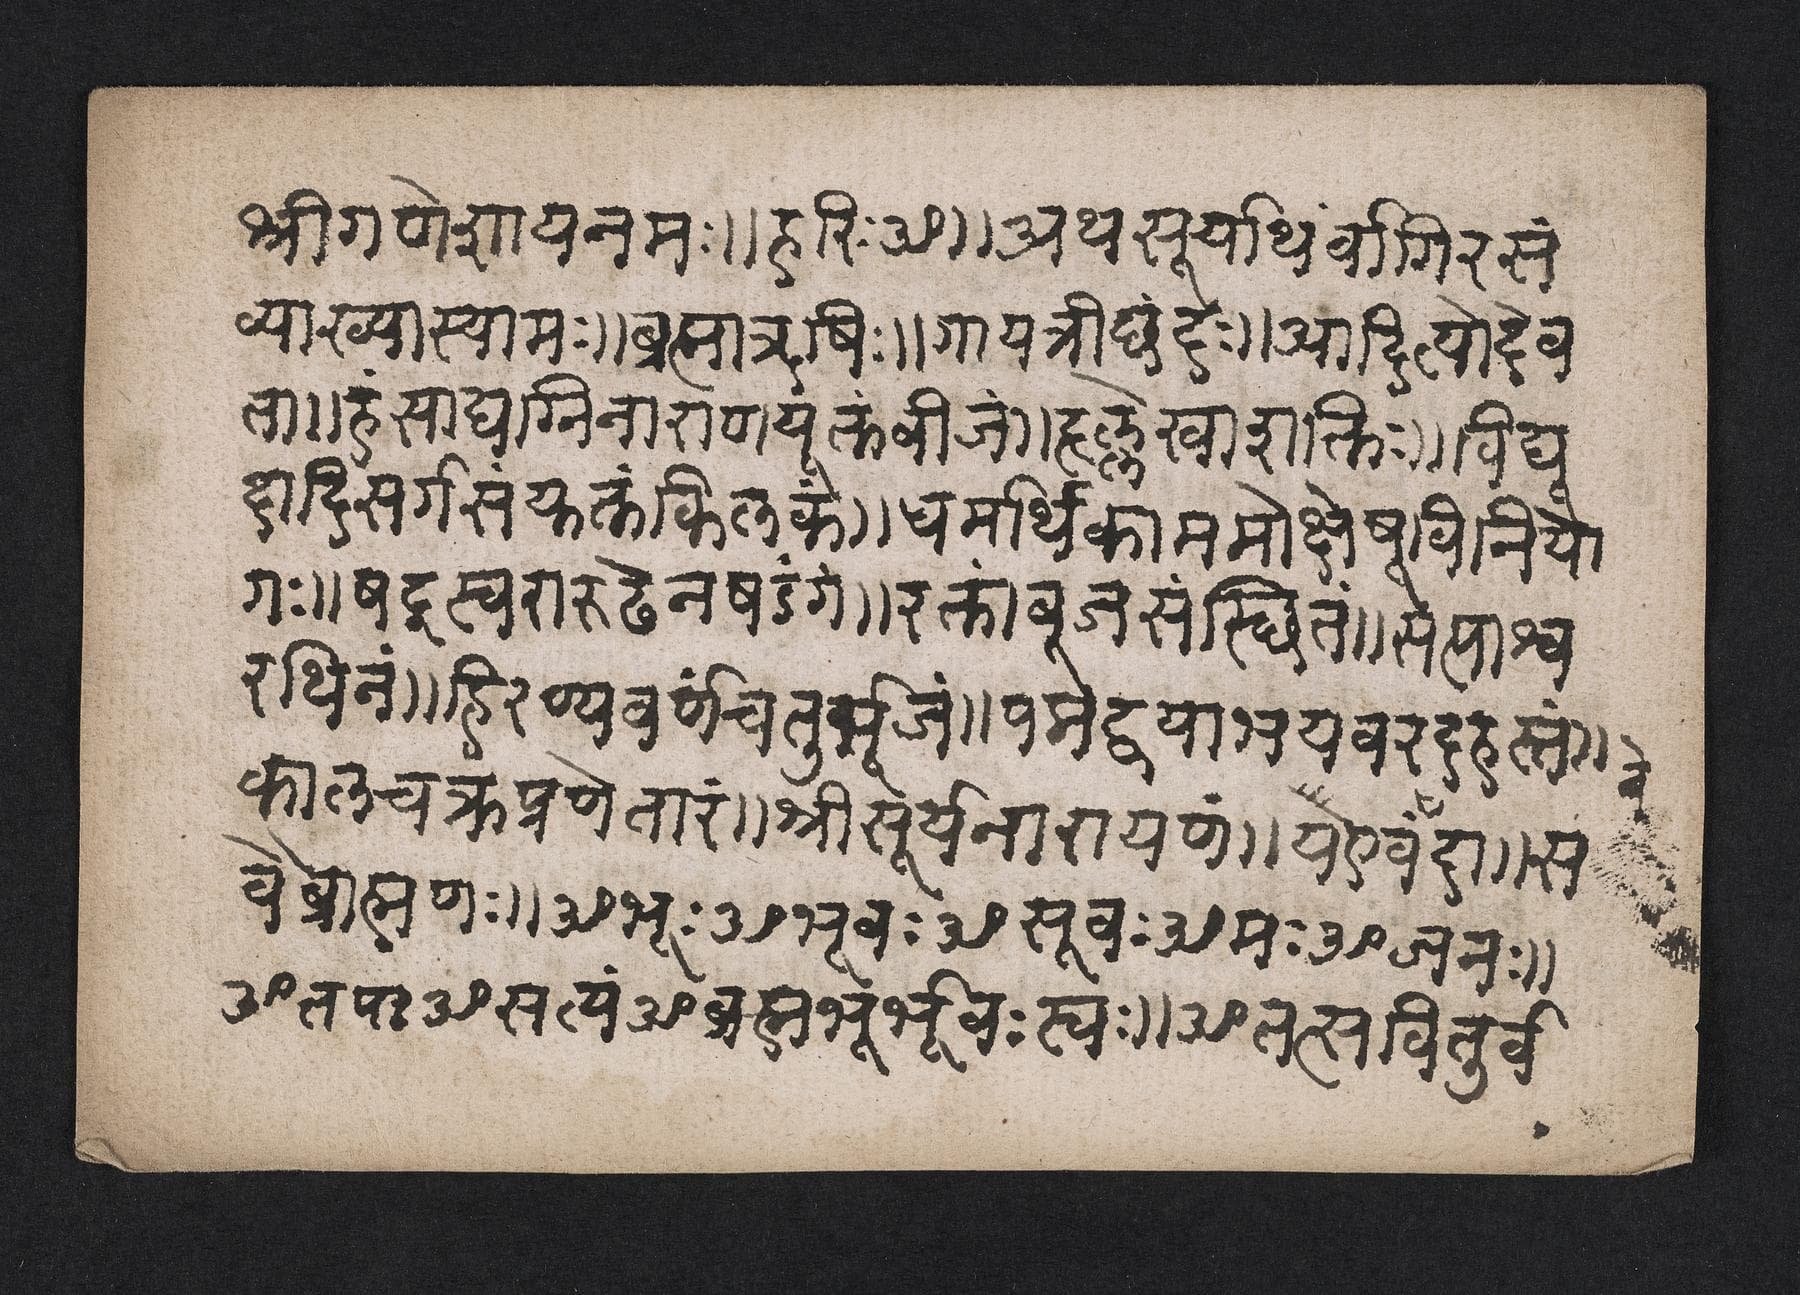 श्रीगणेशायनमः॥हरिःॐ॥अथसूर्याथर्वांगिरसं
व्याख्यास्यामः॥ब्रह्माऋषिः॥गायत्रीछंदः॥आदित्योदेव
ता॥हंसाद्यग्निनाराणयूंक्तंबीजं॥हृल्लेखाशक्तिः॥वियू
द्दादिसर्गसंयक्तंकिलकं॥धमर्थिकाममोक्षेषूविनियो
गः॥षट्स्वरारुढेनषडंगं॥रक्तांबूजसंस्छितं॥सप्ताश्व
रथिनं॥हिरण्यवर्णंचतुर्भूजं॥पद्मद्वयाभयवरदहस्तं॥
कालचक्रप्रणेतारं॥श्रीसूर्यनारायणं॥यएवंवेदा॥स
वैब्राह्मणः॥ॐभूःॐभूवःॐसूवःॐमःॐजनः॥
ॐतपःॐसत्यंॐब्रह्मभूर्भूवःस्वः॥ॐतत्सवितुर्व